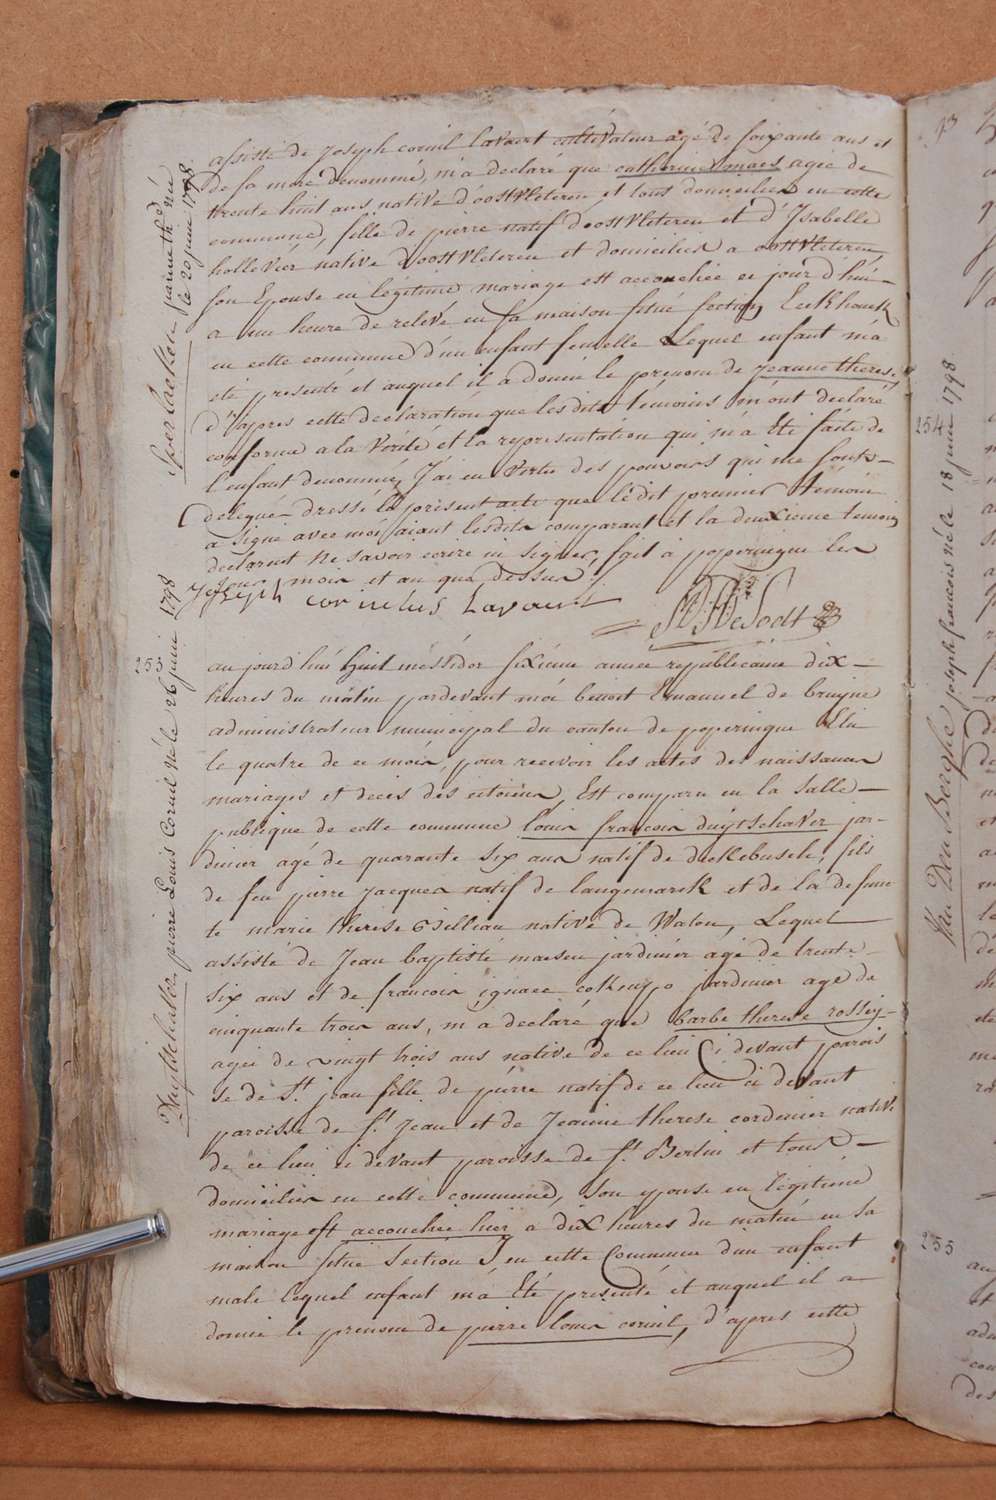 assisté de Joseph corneil lavaert cultivateur agé de soixante ans et
de sa mere denommé, m'a declaré que catherine maes agée de
trente huit ans native d'oostvleteren et tous domiciliés en cette
commune, fille de pierre natif d'oostvleteren et d'Isabelle
hollevier native d'oostvleteren et domicilies a oostvleteren
son Epouse en legitime mariage est accouchée ce jour d'hui
a une heure de relevé en sa maison situé section Eeckhouck
en cette commune d'un enfant femelle Lequel enfant m'a
été presenté et auquel il a donné le prenom de jeanne therese
d'après cette declaration que lesdits témoins m'ont declaré
conforme a la Verité et la representation qui m'a Eté faite de
l'enfant denommé, J'ai en Vertu des pouvoirs qui me sont
delegués dressé le présent acte que ledit premier témoin
a Signé avec moi aiant lesdits comparant et la deuxieme temoin
declarent Ne savoir ecrire ni signer, fait à poperingue les
Jour mois et an que dessus
Joseph cornelus Lavaert
Sperlaeken jeanne th. née
le 20 juin 1798
253
au jourd'hui huit méssidor sixième année républicaine dix
heures du mâtin pardevant moi benoit Emanuel de bruyne
administrateur municipal du canton de poperingue Elu
le quatre de ce mois, pour recevoir les actes de naissances
mariages et decès des citoiens, Est comparu en la Salle
publique de cette commune louis francois duytschaver jar-
dinier agé de quarante six ans natif de dickebusch, fils
de feu pierre jacques natif de langemarck et de la defun
te marie therese Gelliau native de Watou, Lequel
assisté de Jean baptiste maseu jardinier agé de trente
six ans et de francois ignace cokenpo jardinier age de
cinquante trois ans, m'a declaré que barbe therese rossey
agée de vingt trois ans native de ce lieu ci devant parois
se de St. jean fille de pierre natif de ce lieu ci devant
paroisse de St. Jean et de Jeanne therese cordenier native
de ce lieu ci devant paroisse de St. Bertin et tous
domiciliés en cette commune, son epouse en legitime
mariage est accouchée hier a dix heures du matin en sa
maison situé section J en cette Commune d'un enfant
male lequel enfant m'a Eté presenté et auquel il a
donné le prenom de pierre louis corneil, d'apres cette
Duytschaver pierre Louis Corneil né le 26 juin 1798
254
Van Den Berghe joseph francois né le 18 juin 1798
255